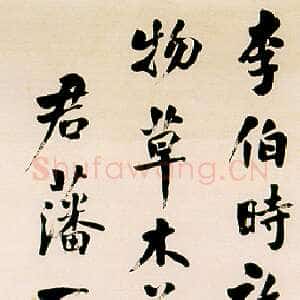 李伯時
物草木
君藩
Shufawang.CN